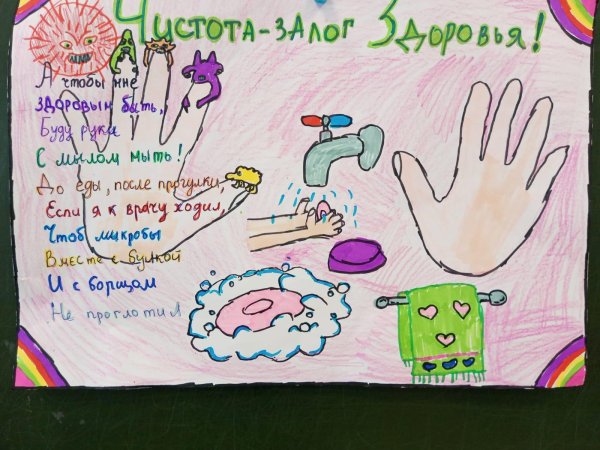 Чистота-залог Здоровья!
А чтобы мне
здоровым быть,
Буду руки
С мылом мыть!
До еды, после прогулки,
Если я к врачу ходил,
Чтоб микробы
Вместе с булкой
И с борщом
Не проглотил